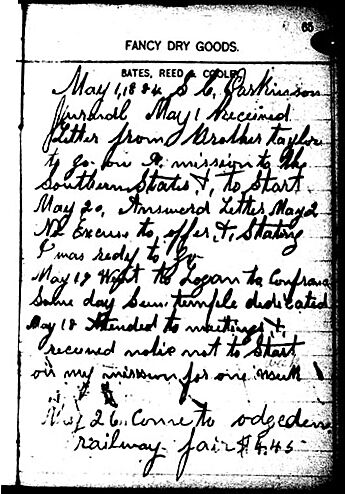 65
FANCY DRY GOODS.
BATES, REED & COOLEY
May 1, 1884 S C Parkinson
Jurnal May 1 Received
Letter from Brother taylor
to go on A mission to the
Southern States &, to Start
May 20, Answerd Letter May 2
No Excuse to offer &, Stating
I was redy to go
May 17 Went to Logan to Confranc
Same day Seen temple dedicated
May 18 Attended to meetings &
received notic not to Start
on my mission for one
May 26 Come to odgeden
railway fair $4.45